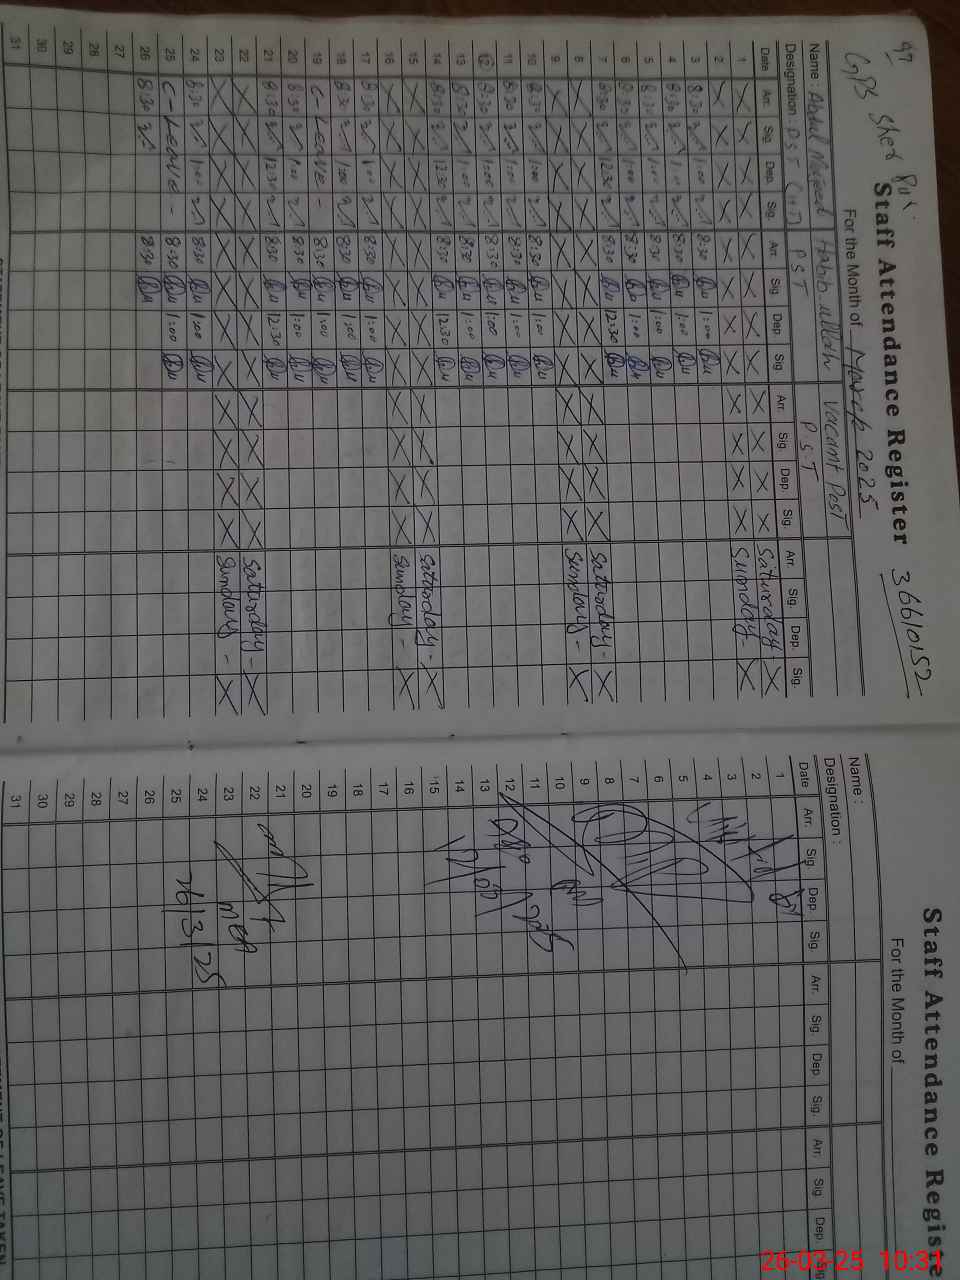 GPS Sher
Staff Attendance Register 36610152
For the Month of March 2025
Name : Abdul Majeed Habib ullah Vacant Post
Designation : PST (HT) PST PST
Date Arr. Sig. Dep. Sig. Arr. Sig. Dep. Sig. Arr. Sig. Dep. Sig. Arr. Sig. Dep. Sig.
1 X X X X X X X X X X X X Saturday - X
2 X X X X X X X X X X X X Sunday - X
3 8:30 1:00 8:30 1:00
4 8:30 1:00 8:30 1:00
5 8:30 1:00 8:30 1:00
6 8:30 1:00 8:30 1:00
7 8:30 12:30 8:30 12:30
8 X X X X X X X X X X X X Saturday - X
9 X X X X X X X X X X X X Sunday - X
10 8:30 1:00 8:30 1:00
11 8:30 1:00 8:30 1:00
12 8:30 1:00 8:30 1:00
13 8:30 1:00 8:30 1:00
14 8:30 12:30 8:30 12:30
15 X X X X X X X X X X X X Saturday - X
16 X X X X X X X X X X X X Sunday - X
17 8:30 1:00 8:30 1:00
18 8:30 1:00 8:30 1:00
19 C - Leave - 8:30 1:00
20 8:30 1:00 8:30 1:00
21 8:30 12:30 8:30 12:30
22 X X X X X X X X X X X X Saturday - X
23 X X X X X X X X X X X X Sunday - X
24 8:30 1:00 8:30 1:00
25 C - Leave - 8:30 1:00
26 8:30 8:30
27
28
29
30
31
Staff Attendance Registe
For the Month of
Name :
Designation :
Date Arr. Sig. Dep. Sig. Arr. Sig. Dep. Sig. Arr. Sig. Dep. Sig
1
2
3
4
5
6
7
8
9
10
11
12
13
14
15
16
17
18
19
20
21
22
23
24
25
26
27
28
29
30
31
MEA
26/3/25
OF LEAVE TAKEN
26-03-25 10:31